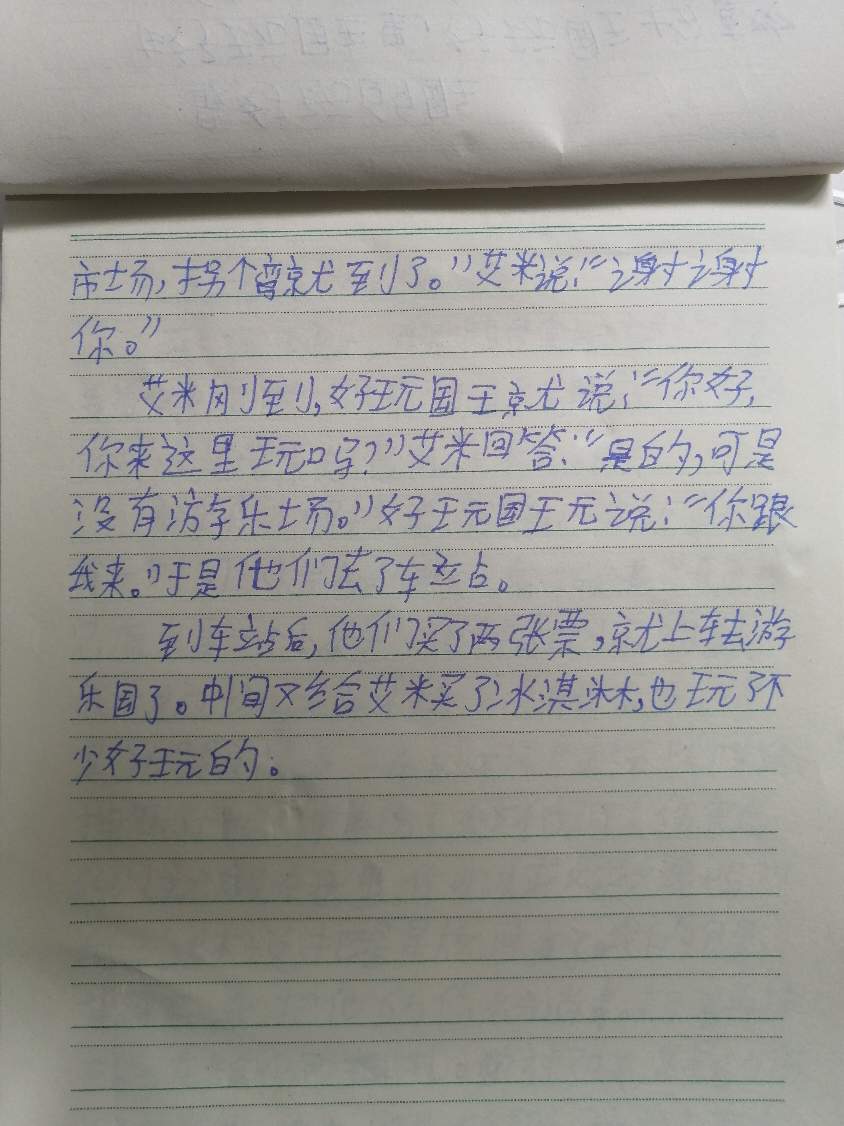 市场,拐个弯就到了。”艾米说:“谢谢
你。”
艾米刚到,好玩国王就说:“你好,
你来这里玩吗?”艾米回答:“是的,可是
没有游乐场。”好玩国王说:“你跟
我来。”于是他们去了车站。
到车站后,他们买了两张票,就上车去游
乐园了。中间又给艾米买了冰淇淋,也玩了不
少好玩的。